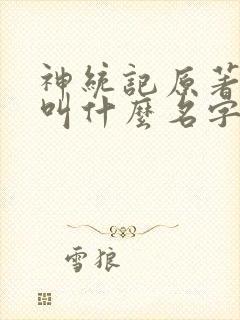 神統記原著
叫什麼名字
雪狼